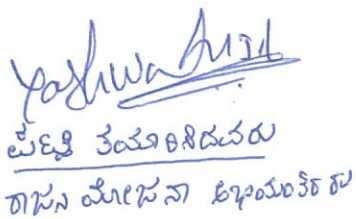 Yashwant
ಪಟ್ಟಿ ತಯಾರಿಸಿದವರು
ರಾಜಸ್ವ ಯೋಜನಾ ಅಭಿಯಂತರರು